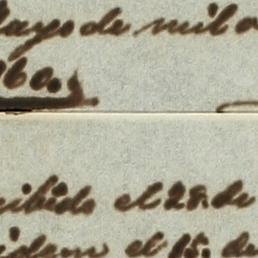 layo de mil o
60.
cibido el 28. de
idem el 15. de